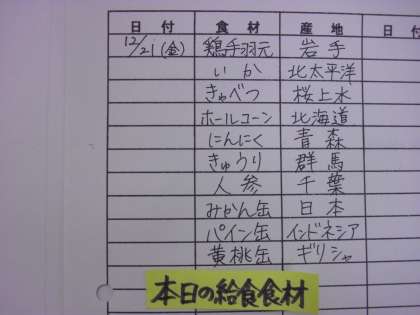 日付 食材 産地 日付
12/21(金) 鶏手羽元 岩手
いか 北太平洋
きゃべつ 桜上水
ホールコーン 北海道
にんにく 青森
きゅうり 群馬
人参 千葉
みかん缶 日本
パイン缶 インドネシア
黄桃缶 ギリシャ
本日の給食食材